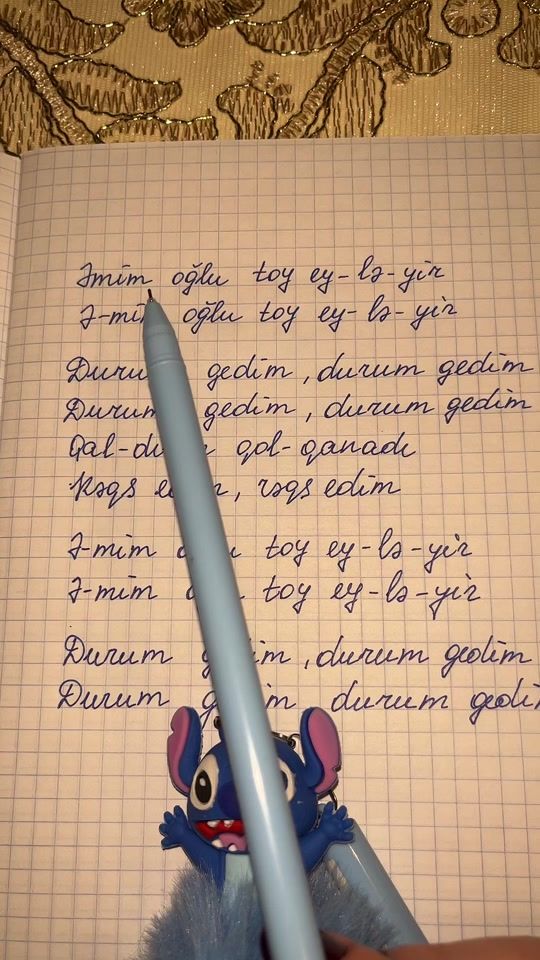 Əmim oğlu toy ey-lə-yir
Ə-mim oğlu toy ey-lə-yir
Durum gedim, durum gedim
Durum gedim, durum gedim
Qal-dırım qol-qanadı
Rəqs edim, rəqs edim
Ə-mim oğlu toy ey-lə-yir
Ə-mim oğlu toy ey-lə-yir
Durum gedim, durum gedim
Durum gedim durum gedim